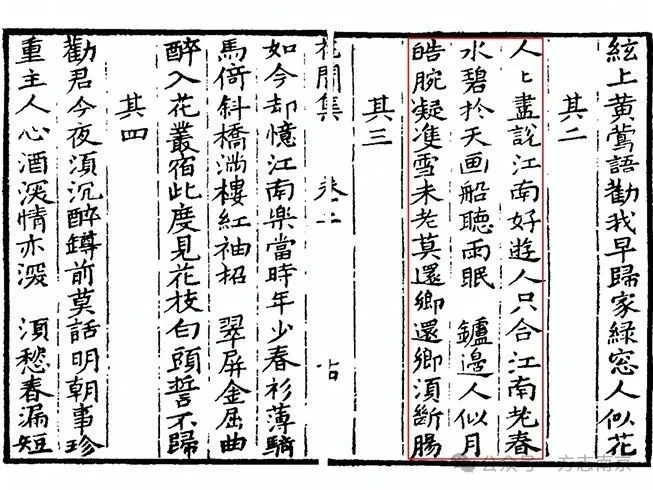 絃上黄鶯語勸我早歸家緑窓人似花
其二
人〻盡說江南好遊人只合江南老春
水碧扵天画船聽雨眠　鑪邊人似月
皓腕凝隻雪未老莫還鄉還鄉湏斷腸
其三
花間集　卷二
如今却憶江南樂當時年少春衫薄騎
馬倚斜橋滿樓紅袖招　翠屏金屈曲
醉入花叢宿此度見花枝白頭誓不歸
其四
勸君今夜湏沉醉鐏前莫話明朝事珍
重主人心酒深情亦深　湏愁春漏短
公众号 · 方志南京